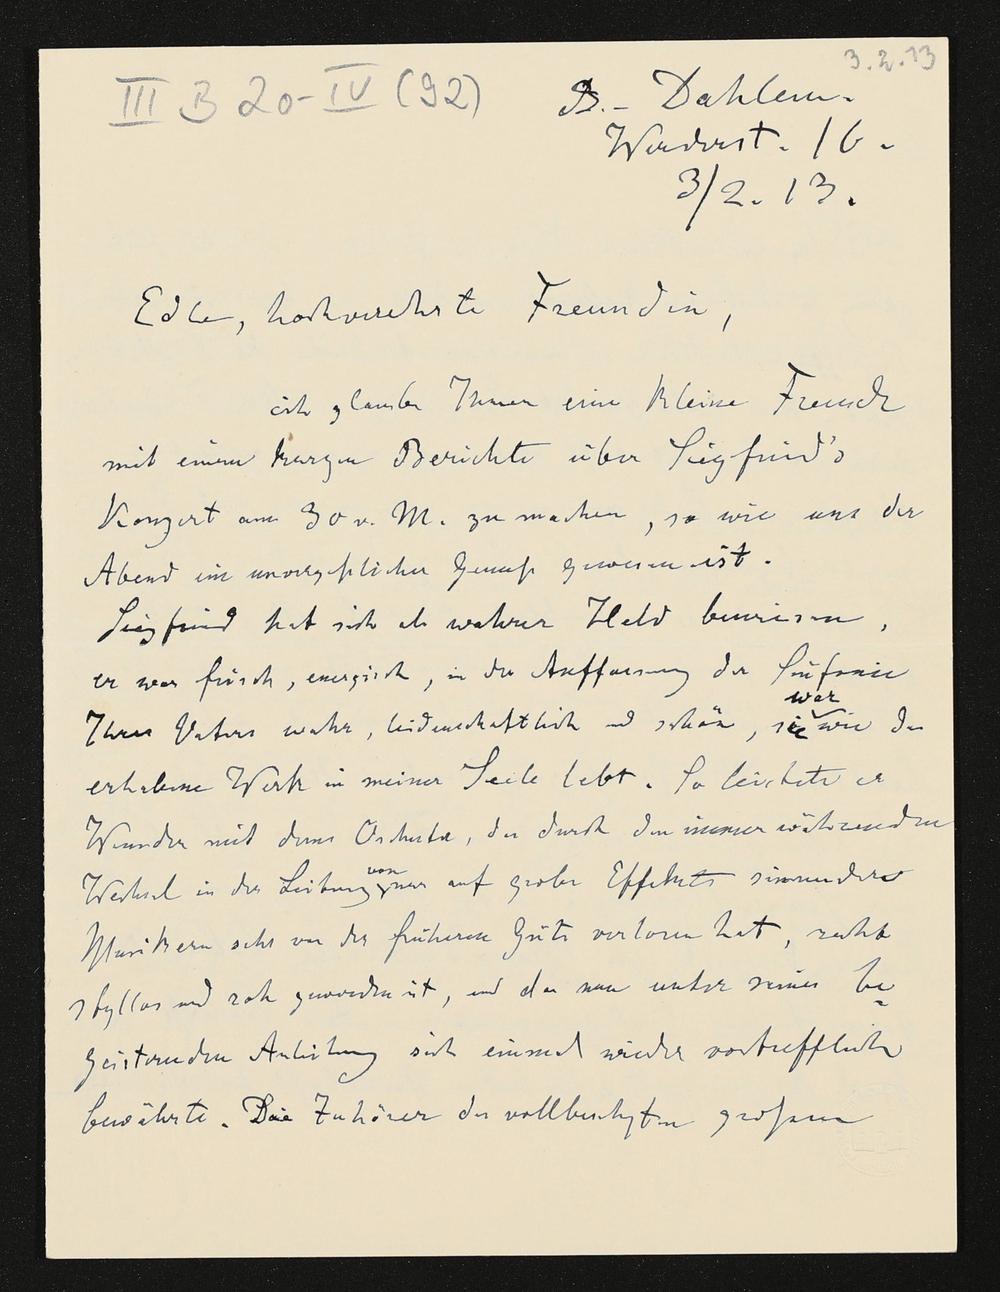 3.2.13
III B 20-IV (92)
B. - Dahlem.
Werderst. 16.
3/2. 13.
Edle, hochverehrte Freundin,
ich glaube Ihnen eine kleine Freude
mit einem kurzen Berichte über Siegfried's
Konzert am 30 v. M. zu machen, so wie uns der
Abend ein unvergeßlicher Genuß gewesen ist.
Siegfried hat sich als wahrer Held bewiesen,
er war frisch, energisch, in der Auffassung der Sinfonie
Ihres Vaters wahr, leidenschaftlich und schön, sie war wie das
erhabene Werk in meiner Seele lebt. So leistete er
Wunder mit dem Orchester, das durch den immerwährenden
Wechsel in der Leitung von nur auf grobe Effekte sinnender
Musikern sehr von der früheren Güte verloren hat, recht
styllos und roh geworden ist, und das nun unter seiner be
geisternden Anleitung sich einmal wieder vortrefflich
bewährte. Die Zuhörer des vollbesetzten großen